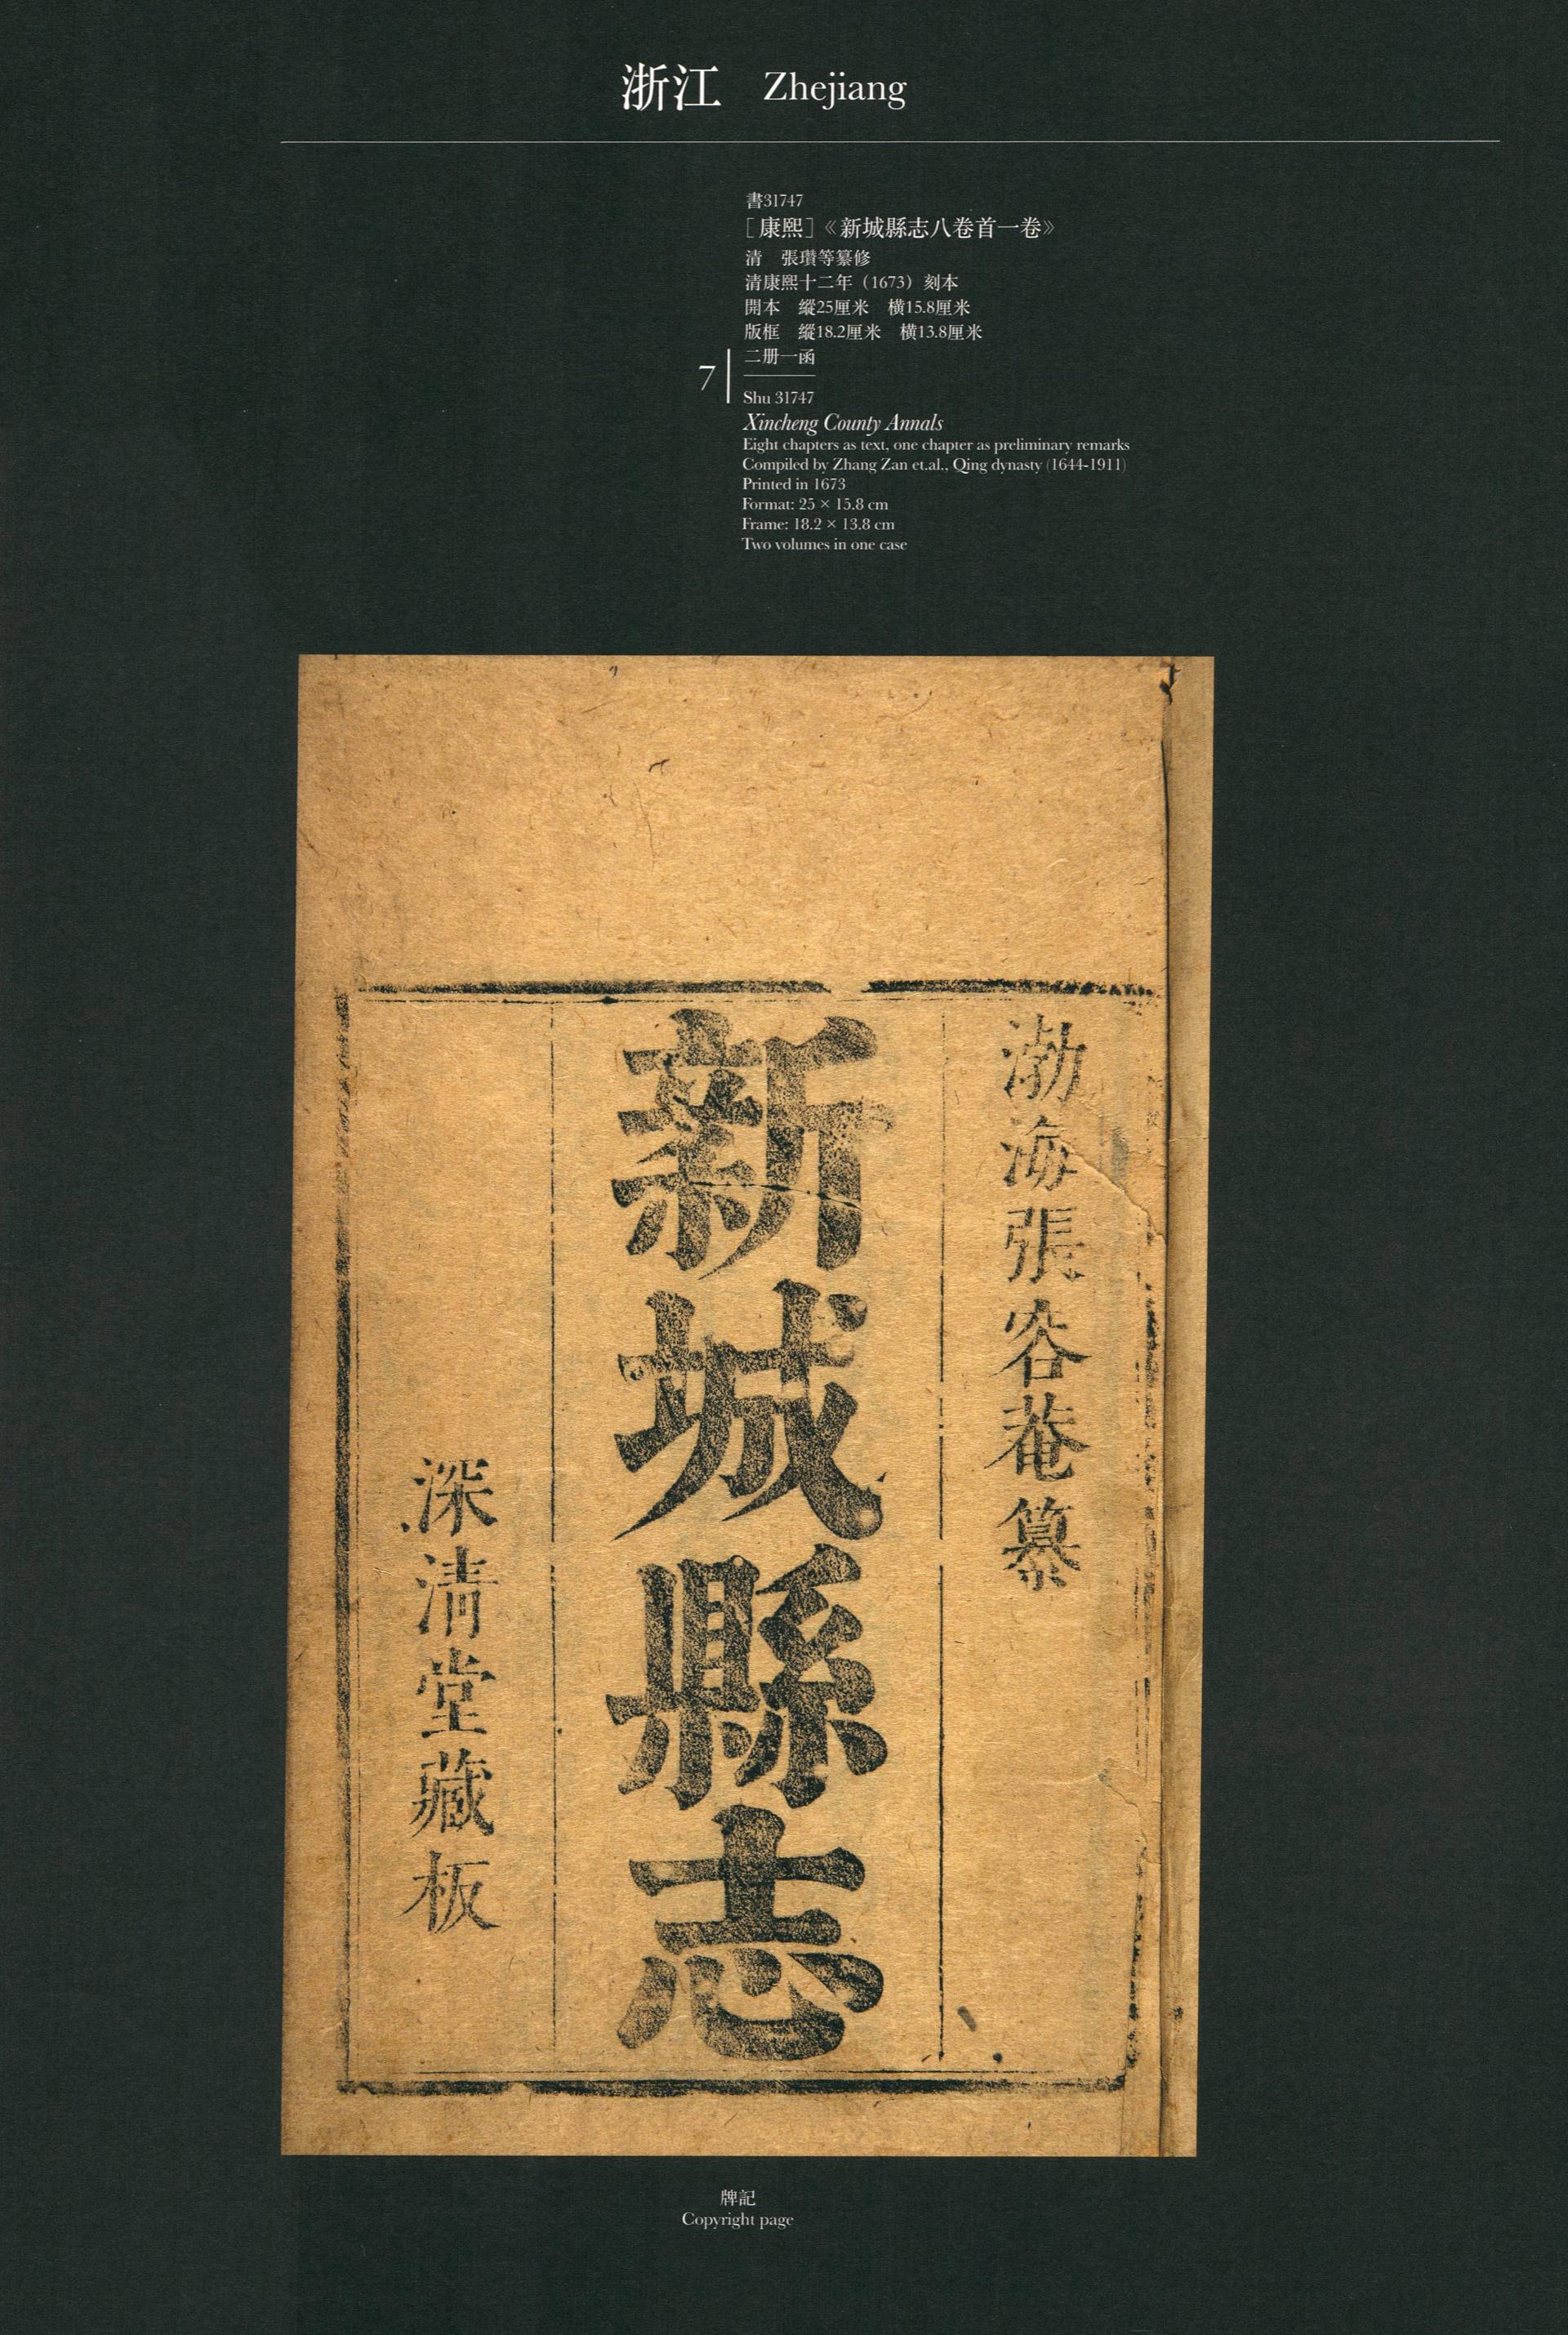 浙江 Zhejiang
書31747
［康熙］《新城縣志八卷首一卷》
清　張瓚等纂修
清康熙十二年（1673）刻本
開本　縱25厘米　橫15.8厘米
版框　縱18.2厘米　橫13.8厘米
二册一函
7
Shu 31747
Xincheng County Annals
Eight chapters as text, one chapter as preliminary remarks
Compiled by Zhang Zan et.al., Qing dynasty (1644-1911)
Printed in 1673
Format: 25 × 15.8 cm
Frame: 18.2 × 13.8 cm
Two volumes in one case
渤海張容菴纂
新城縣志
深清堂藏板
牌記
Copyright page